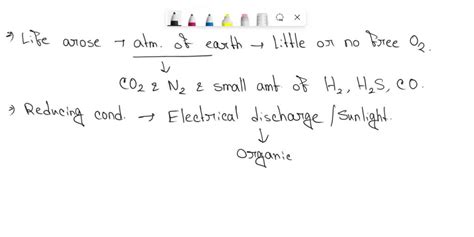 ⇒ Life arose → atm. of earth → Little or no free O2.
↓
CO2 & N2 & small amt of H2, H2S, CO.
⇒ Reducing cond. → Electrical discharge / Sunlight.
↓
Organic